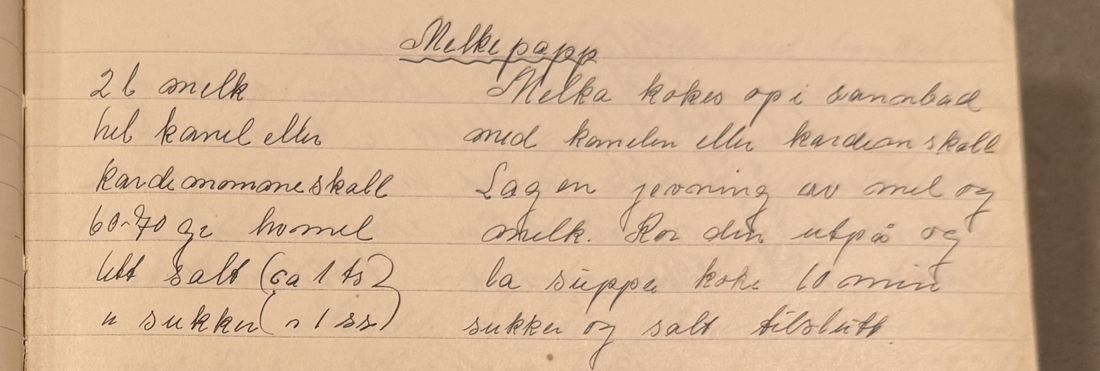 Melkepapp
2 l melk
hel kanel eller
kardemommeskall
60-70 gr hvmel
litt salt (ca 1 ts)
" sukker (" 1 ss)
Melka kokes op i vannbad
med kanelen eller kardemskall
Lag en jevning av mel og
melk. Rør den utpå og
la suppa koke 10 min
sukker og salt tilslutt